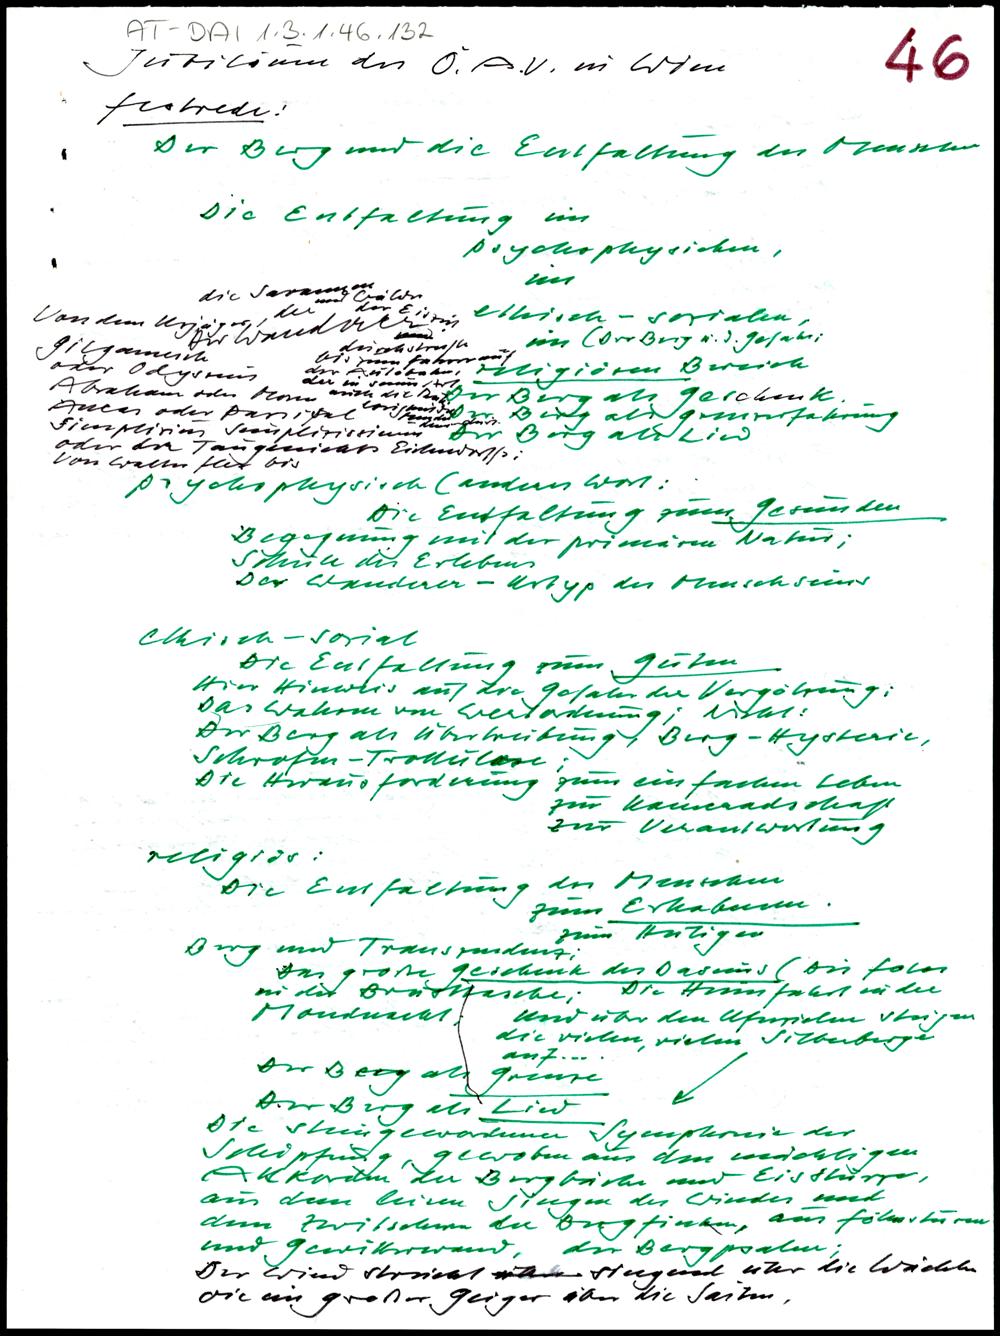 AT-DAI 1.3.1.46.132
46
Jubiläum des Ö.A.V. in Wien
Festrede:
Der Berg und die Entfaltung des Menschen
Die Entfaltung im
psychophysichen,
im
ethisch-sozialen,
im (Der Berg u. s. Gefahr:
religiösen Bereich
Der Berg als Geschenk.
Der Berg als Grenzerfahrung
Der Berg als Lied
die Savannen
und Wälder
Von dem Urjäger, der der Eiszeit
Der Wanderer
Gilgamesch und
oder Odysseus
bis zum Fahrer auf
der Autobahn,
Abraham oder Moses auch die
Äneas oder Parsifal
Simplizius Simplizissimus
oder der Taugenichts Eichendorffs:
von Walter Flex bis
psychophysisch (anderes Wort:
Die Entfaltung zum Gesunden
Begegnung mit der primären Natur;
Schule des Erlebens
Der Wanderer - Urtyp des Menschseins
ethisch-sozial
Die Entfaltung zum Guten
Hier Hinweis auf die Gefahr der Vergötzung:
Das Wahren von Wertordnung; Nicht:
Der Berg als Übertreibung, Berg-Hysterie,
Schrofen-
Die Herausforderung zum einfachen Leben
zur Kameradschaft
zur Verantwortung
religiös:
Die Entfaltung des Menschen
zum Erhabenen.
zum Heiligen
Berg und Transzendenz:
Das große Geschenk des Daseins (Die Fotos
in der Brusttasche; Die Heimfahrt in der
Mondnacht. Und über den Uferzielen steigen
die vielen, vielen Silberberge
auf....
Der Berg als Grenze
Der Berg als Lied
Die steingewordene Symphonie der
Schöpfung, gewoben aus den mächtigen
Akkorden der Bergbäche und Eisstürze,
aus dem leisen Singen des Windes und
dem Zwitschern der Bergfinken, aus Föhnsturm
und Gewitterwand, der Bergpsalm;
Der Wind streicht singend über die Wächten
wie ein großer Geiger über die Saiten,